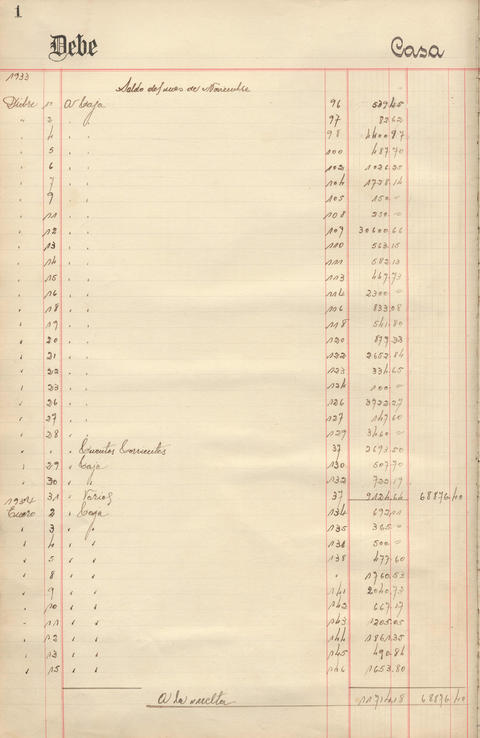 1
Debe Casa
1933
Saldo del mes de Noviembre
Dicbre 1º a Caja 96 539.45
" 2 " " 97 82.62
" 4 " " 98 4400.97
" 5 " " 100 487.70
" 6 " " 102 1026.25
" 7 " " 104 1728.14
" 9 " " 105 150.=
" 11 " " 108 250.=
" 12 " " 109 30600.66
" 13 " " 110 563.15
" 14 " " 111 682.13
" 15 " " 113 467.73
" 16 " " 114 2300.=
" 18 " " 116 833.08
" 19 " " 118 541.80
" 20 " " 120 879.33
" 21 " " 122 2652.84
" 22 " " 123 334.65
" 23 " " 124 100.=
" 26 " " 126 3722.27
" 27 " " 127 147.60
" 28 " " 129 3460.=
" " " Cuentas Corrientes 37 2693.50
" 29 " Caja 130 507.70
" 30 " " 132 722.19
" 31 " Varios 37 9124.64 68876.40
1934
Enero 2 " Caja 134 692.11
" 3 " " 135 365.=
" 4 " " 138 500.=
" 5 " " 138 477.60
" 8 " " " 1760.53
" 9 " " 141 2040.73
" 10 " " 142 667.17
" 11 " " 143 1205.05
" 12 " " 144 1861.35
" 13 " " 145 490.84
" 15 " " 146 1653.80
A la vuelta 11714.18 68876.40